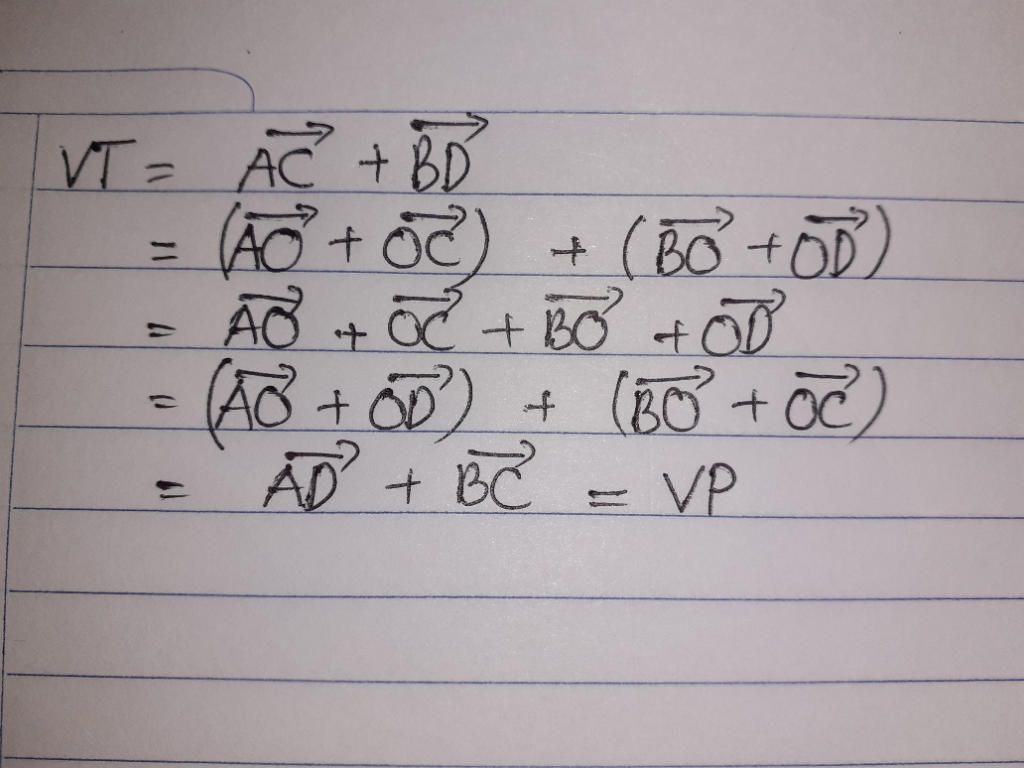 VT = $\overrightarrow{AC}$ + $\overrightarrow{BD}$
= ($\overrightarrow{AO}$ + $\overrightarrow{OC}$) + ($\overrightarrow{BO}$ + $\overrightarrow{OD}$)
= $\overrightarrow{AO}$ + $\overrightarrow{OC}$ + $\overrightarrow{BO}$ + $\overrightarrow{OD}$
= ($\overrightarrow{AO}$ + $\overrightarrow{OD}$) + ($\overrightarrow{BO}$ + $\overrightarrow{OC}$)
= $\overrightarrow{AD}$ + $\overrightarrow{BC}$ = VP